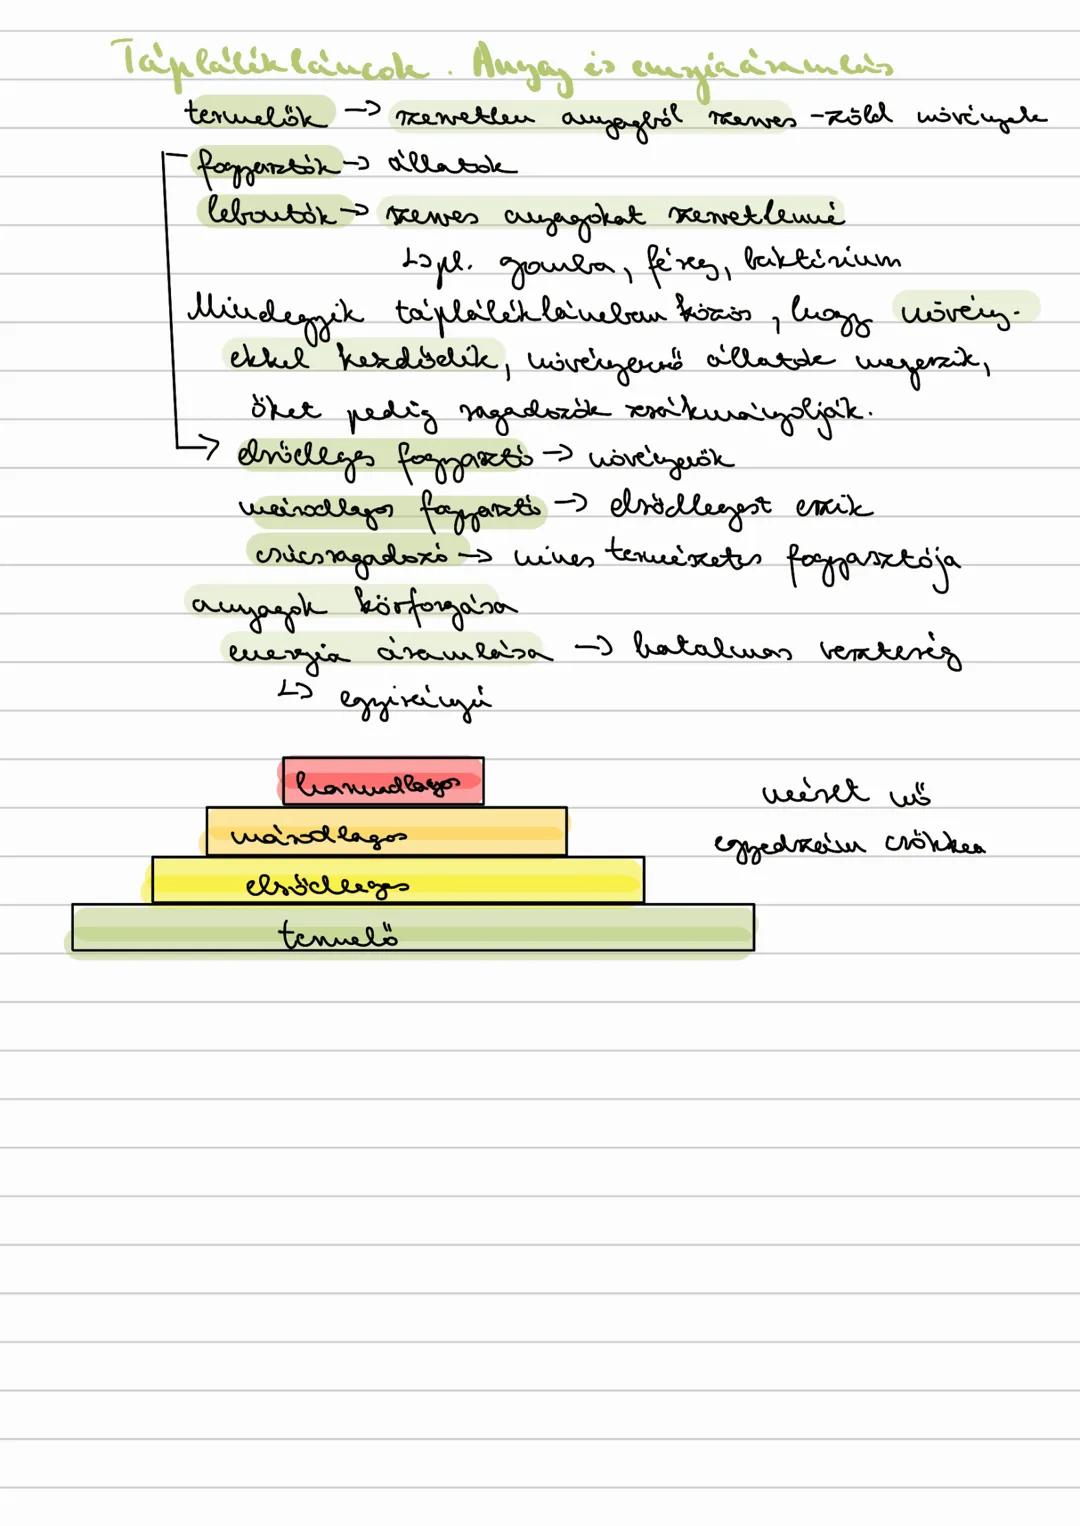 Táplálékláncok. Anyag és energiaáramlás
termelők → szervetlen anyagból szerves - zöld növények
fogyasztók → állatok
lebontók → szerves anyagokat szervetlenné
↳ pl. gomba, féreg, baktérium
Mindegyik táplálékláncban közös, hogy növény-
ekkel kezdődik, növényevő állatok megeszik,
őket pedig ragadozók zsákmányolják.
→ elsődleges fogyasztó → növényevők
másodlagos fogyasztó → elsődlegest eszik
csúcsragadozó → nincs természetes fogyasztója
anyagok körforgása
energia áramlása → hatalmas veszteség
↳ egyirányú
harmadlagos
méret nő
másodlagos
egyedszám csökken
elsődleges
termelő